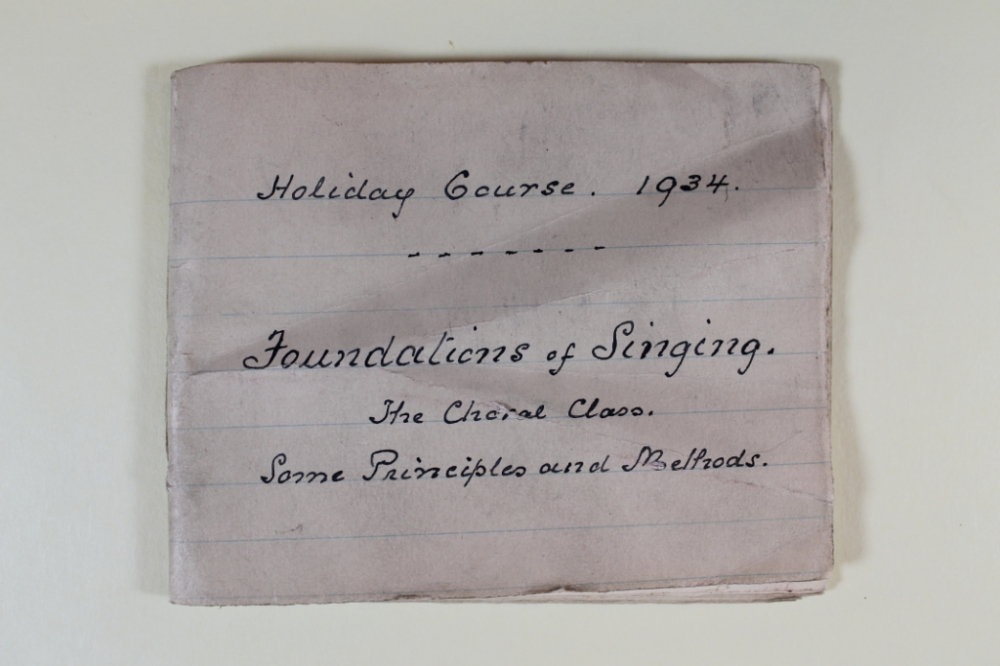 Holiday Course. 1934.
- - - - - - -
Foundations of Singing.
The Choral Class.
Some Principles and Methods.